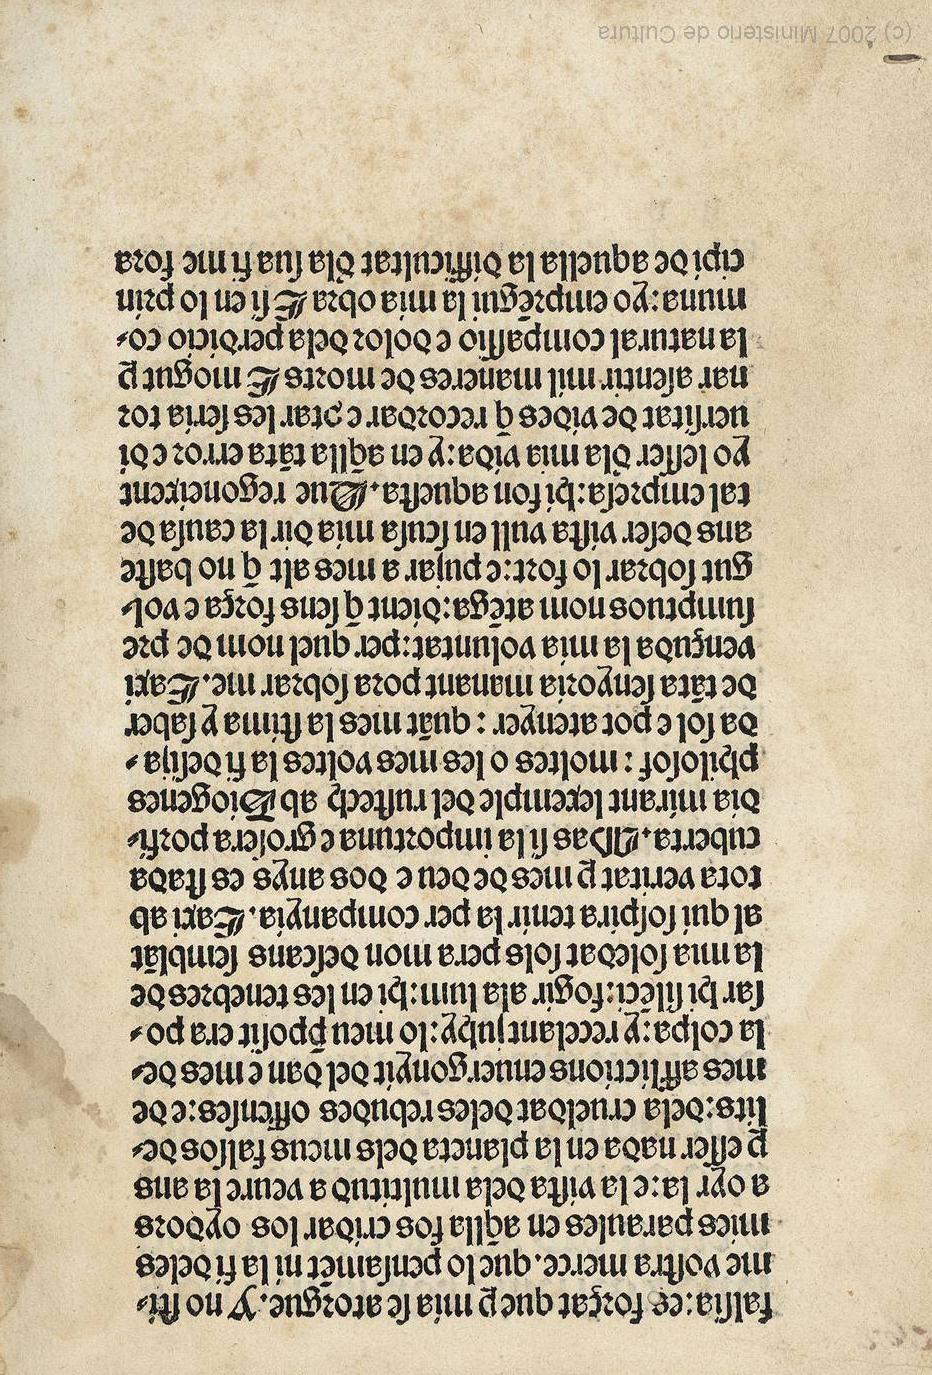 falsia: es forçat queꝑ mia se atorgue. Y no sti-
me vostra merce. que lo pensamēt ni la fi deles
mies paraules en aq̄lla fos cridar los oydors
a oyr la: e la vista dela multitud a veure la ans
ꝑ esser nada en la planeta dels meus falsos de-
lits: dela crueldat deles rebudes offenses: e de
mes afflictions enuergonyit del dan e mes de-
la colpa: y recelant lo meu ꝓposit era po-
sar hi sileci: fogir ala lum: hi en les tenebres de
la mia soledat sols pera mon descans semblāt
al qui sospira tenir la per companyia. E axi ab
tota veritat ꝑ mes de deu e dos anys es stada
cuberta. Mas si la importuna e grossera porfi-
dia mirant lexemple del rustech ab Diogenes
philosof: moltes o les mes voltes la fi desija-
da sol e pot atenyer: quāt mes la stima y saber
de tāta senyoria manant pora sobrar me. E axi
vençuda la mia voluntat: per quel nom de pre
sumptuos nom atega: dient q̄ sens força e vol-
gut sobrar lo fort: e pujar a mes alt q̄ no baste
ans deser vista vull en scusa mia dir la causa de
tal empresa: hi son aquesta. Que regonexent
yo lesser dla mia vida: y en aq̄lla tāta error e di
uersitat de vides q̄ recordar e ꝯtar les seria tor
nar asentir mil maneres de morts E mogut ꝑ
la natural compassio e dolor dela perdicio co-
muna: yo emprēgui la mia obra E si en lo prin
cipi de aquella la difficultat dla sua fi me fora
(c) 2007 Ministerio de Cultura